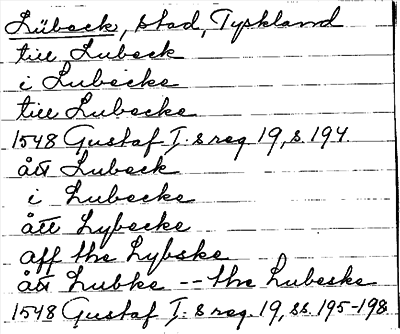 Lübeck, stad, Tyskland
till Lubeck
i Lubecke
till Lubecke
1548 Gustaf I:s reg 19, s. 194
ått Lubeck
i Lubecke
ått Lybecke
aff the Lybske
ått Lubke -- the Lubeske
1548 Gustaf I:s reg 19, ss. 195-198